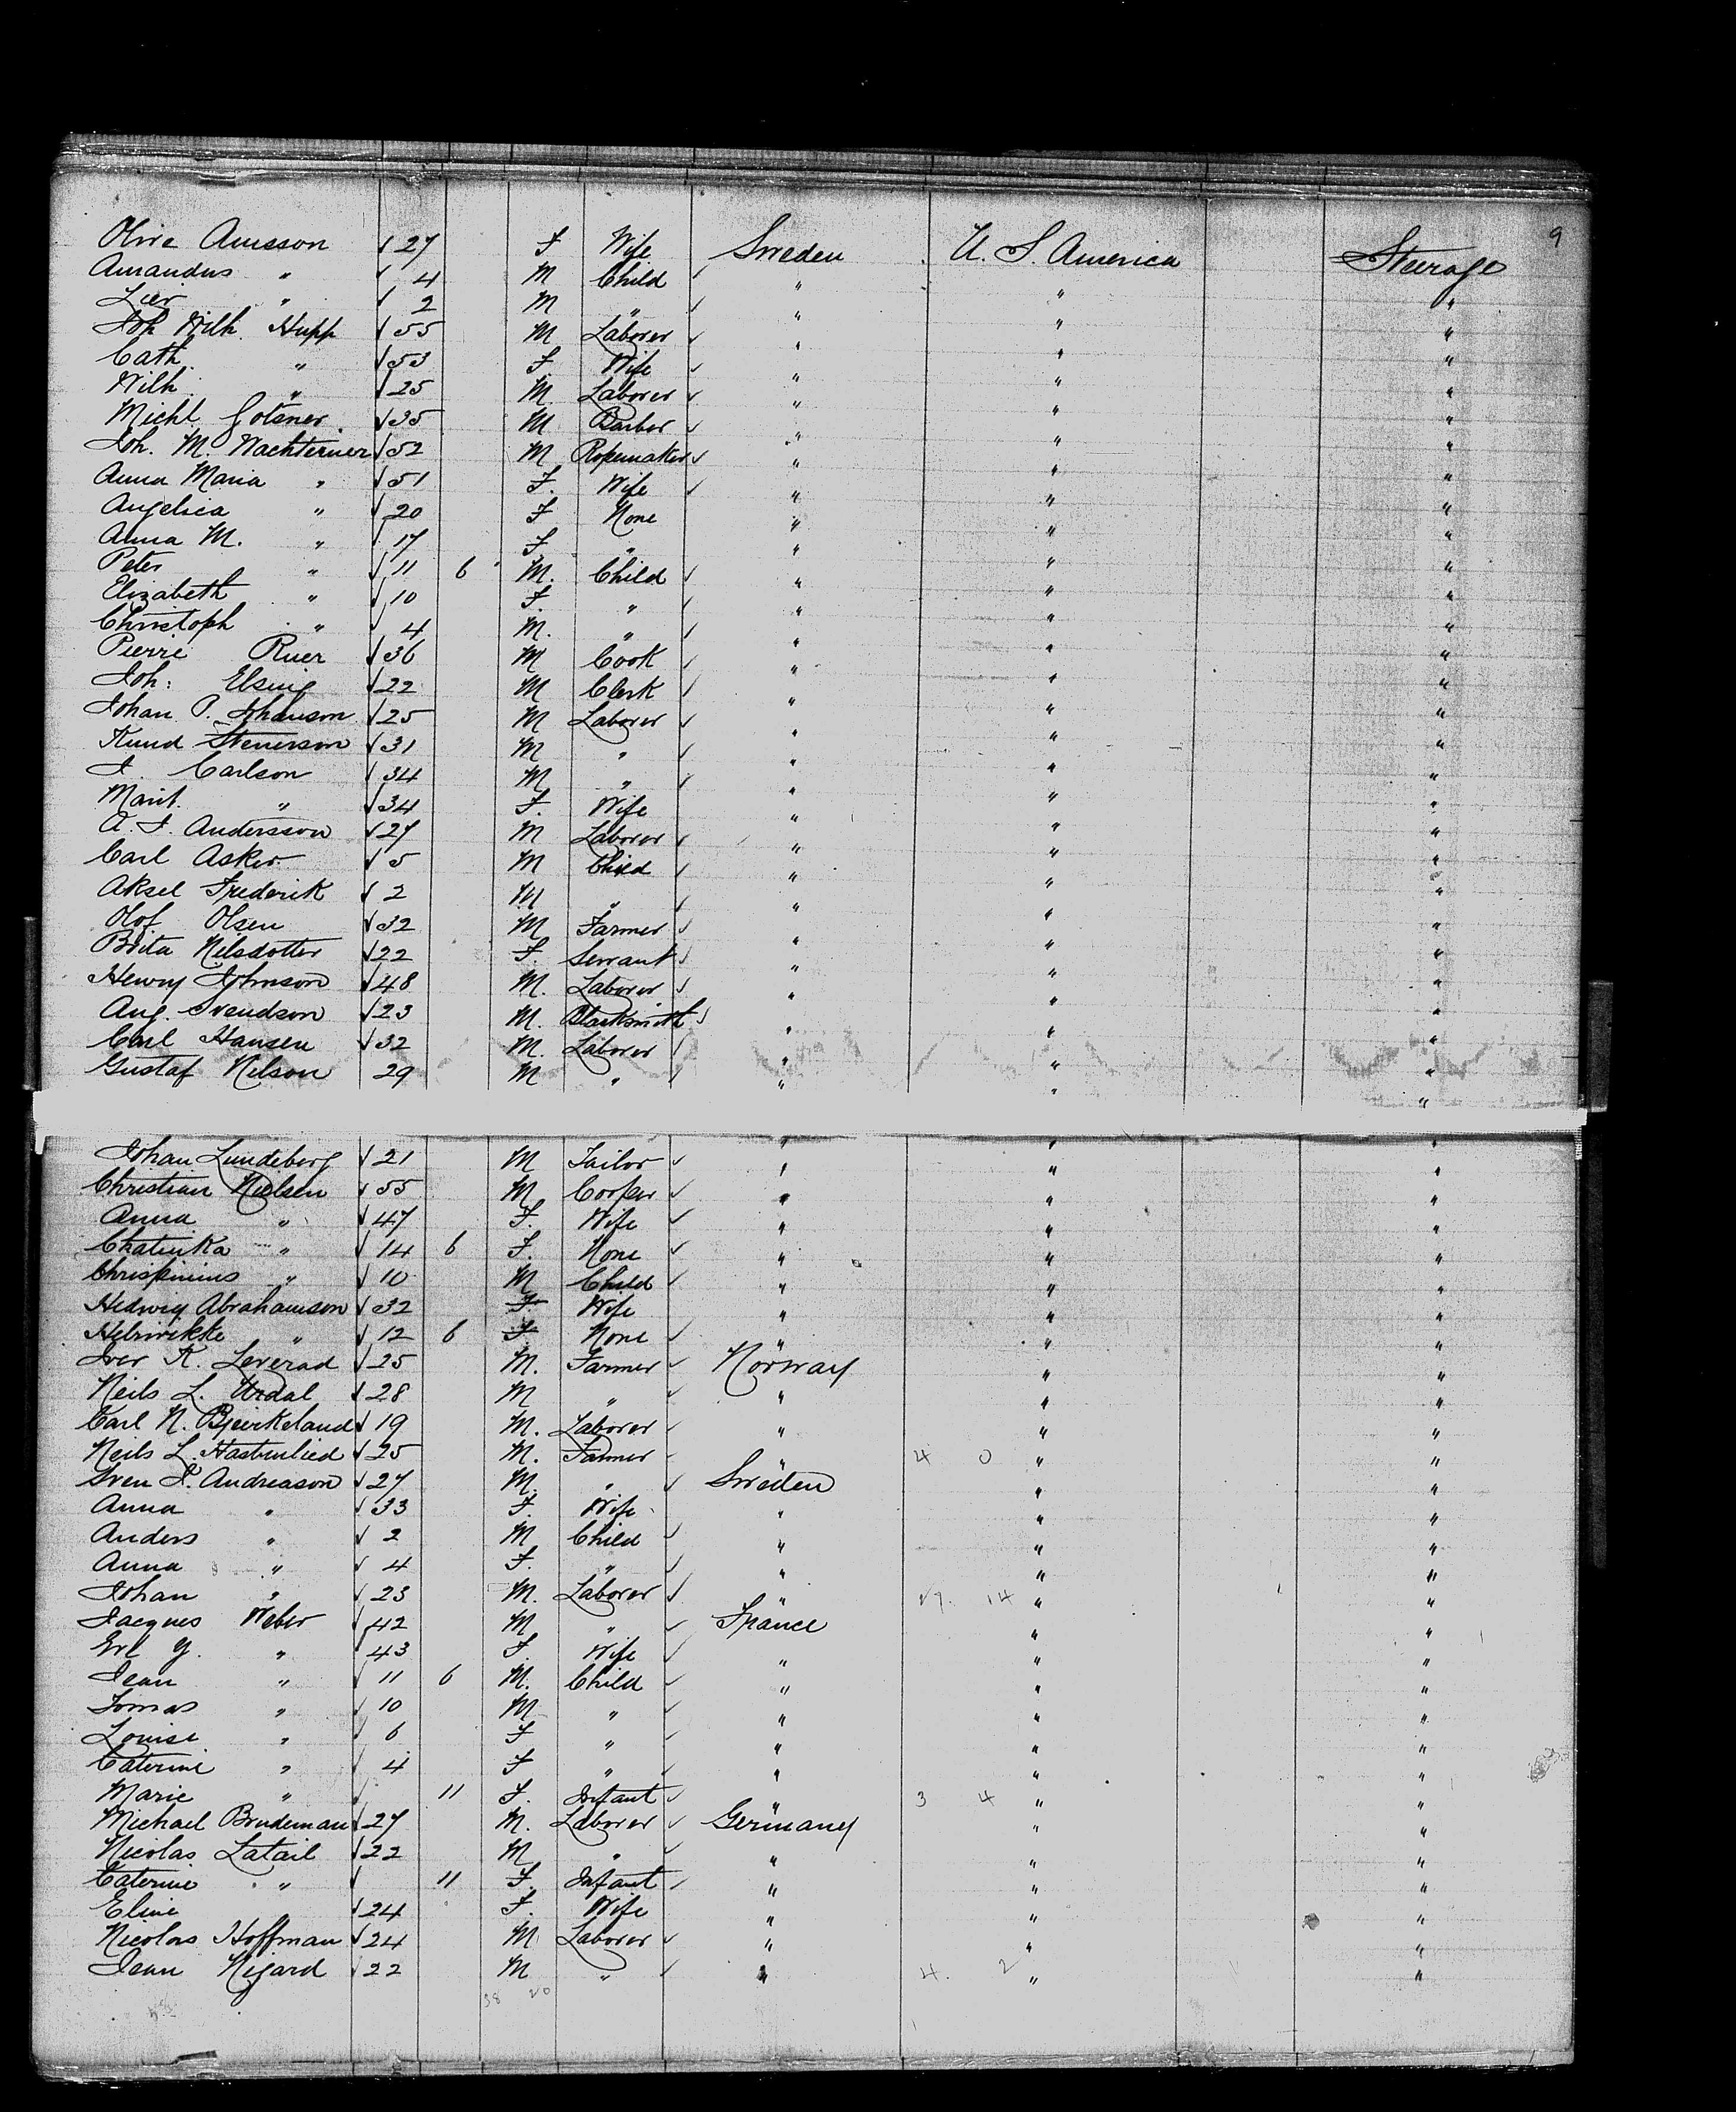 9
Olive Amsson √ 27 F Wife Sweden U. S. America Steerage
Amandus " √ 4 M Child √ " " "
" √ 2 M " √ " " "
Joh Wilh. Hupp √ 55 M Laborer √ " " "
Cath. " √ 53 F. Wife √ " " "
Wilh. " √ 25 M. Laborer √ " " "
Michl. Gotsner √ 35 M Barber √ " " "
Joh. M. Wachterner √ 52 M Ropemaker √ " " "
Anna Maria " √ 51 F. Wife √ " " "
Angelica " √ 20 F None " " "
Anna M. " √ 17 F. " " " "
Peter " √ 11 6 M. Child √ " " "
Elizabeth " √ 10 F. " √ " " "
Christoph " √ 4 M. " √ " " "
Pierre Ruer √ 36 M Cook √ " " "
Joh: Elsing √ 22 M Clerk √ " " "
Johan P. Johanson √ 25 M Laborer √ " " "
Knud Stenerson √ 31 M " √ " " "
J. Carlson √ 34 M " √ " " "
Marit. " √ 34 F. Wife " " "
A. J. Andersson √ 27 M Laborer √ " " "
Carl Asker √ 5 M Child √ " " "
Aksel Frederik √ 2 M " √ " " "
Olof Olsen √ 32 M Farmer √ " " "
Brita Nilsdotter √ 22 F. Servant √ " " "
Henry Johnson √ 48 M. Laborer √ " " "
Aug. Svendson √ 23 M. Blacksmith √ " " "
Carl Hansen √ 32 M. Laborer √ " " "
Gustaf Nelson 29 M " √ " " "
Johan Lundeberg √ 21 M Tailor √ " " "
Christian Nielsen √ 55 M. Cooper √ " " "
Anna " √ 47 F. Wife √ " " "
Chatinka " √ 14 6 F. None √ " " "
Chrispinius " √ 10 M Child √ " " "
Hedwig Abrahamson √ 32 F Wife " " "
" √ 12 6 F. None √ " " "
Iver K. Leverad √ 25 M. Farmer √ Norway " "
Neils L. Urdal √ 28 M " √ " " "
Carl N. Bjerkeland √ 19 M. Laborer √ " " "
Neils L. √ 25 M. Farmer " 4 0 " "
Sven J. Andreason √ 27 M. " √ Sweden " "
Anna " √ 33 F. Wife " " "
Anders " √ 2 M Child √ " " "
Anna " √ 4 F. " √ " " "
Johan " √ 23 M. Laborer √ " 14 " "
Jacques Weber √ 42 M " √ France " "
" √ 43 F Wife √ " " "
Jean " √ 11 6 M. Child √ " " "
Tomas " √ 10 M " √ " " "
Louise " √ 6 F " √ " " "
Caterine " √ 4 F " √ " " "
Marie " √ 11 F. Infant √ " 3 4 " "
Michael Brudeman √ 27 M. Laborer √ Germany " "
Nicolas Latail √ 22 M " √ " " "
Caterine " √ 11 F. Infant √ " " "
Eline √ 24 F. Wife " " "
Nicolas Hoffman √ 24 M Laborer √ " " "
Jean Nigard √ 22 M " √ " 4. 2 " "
38 20